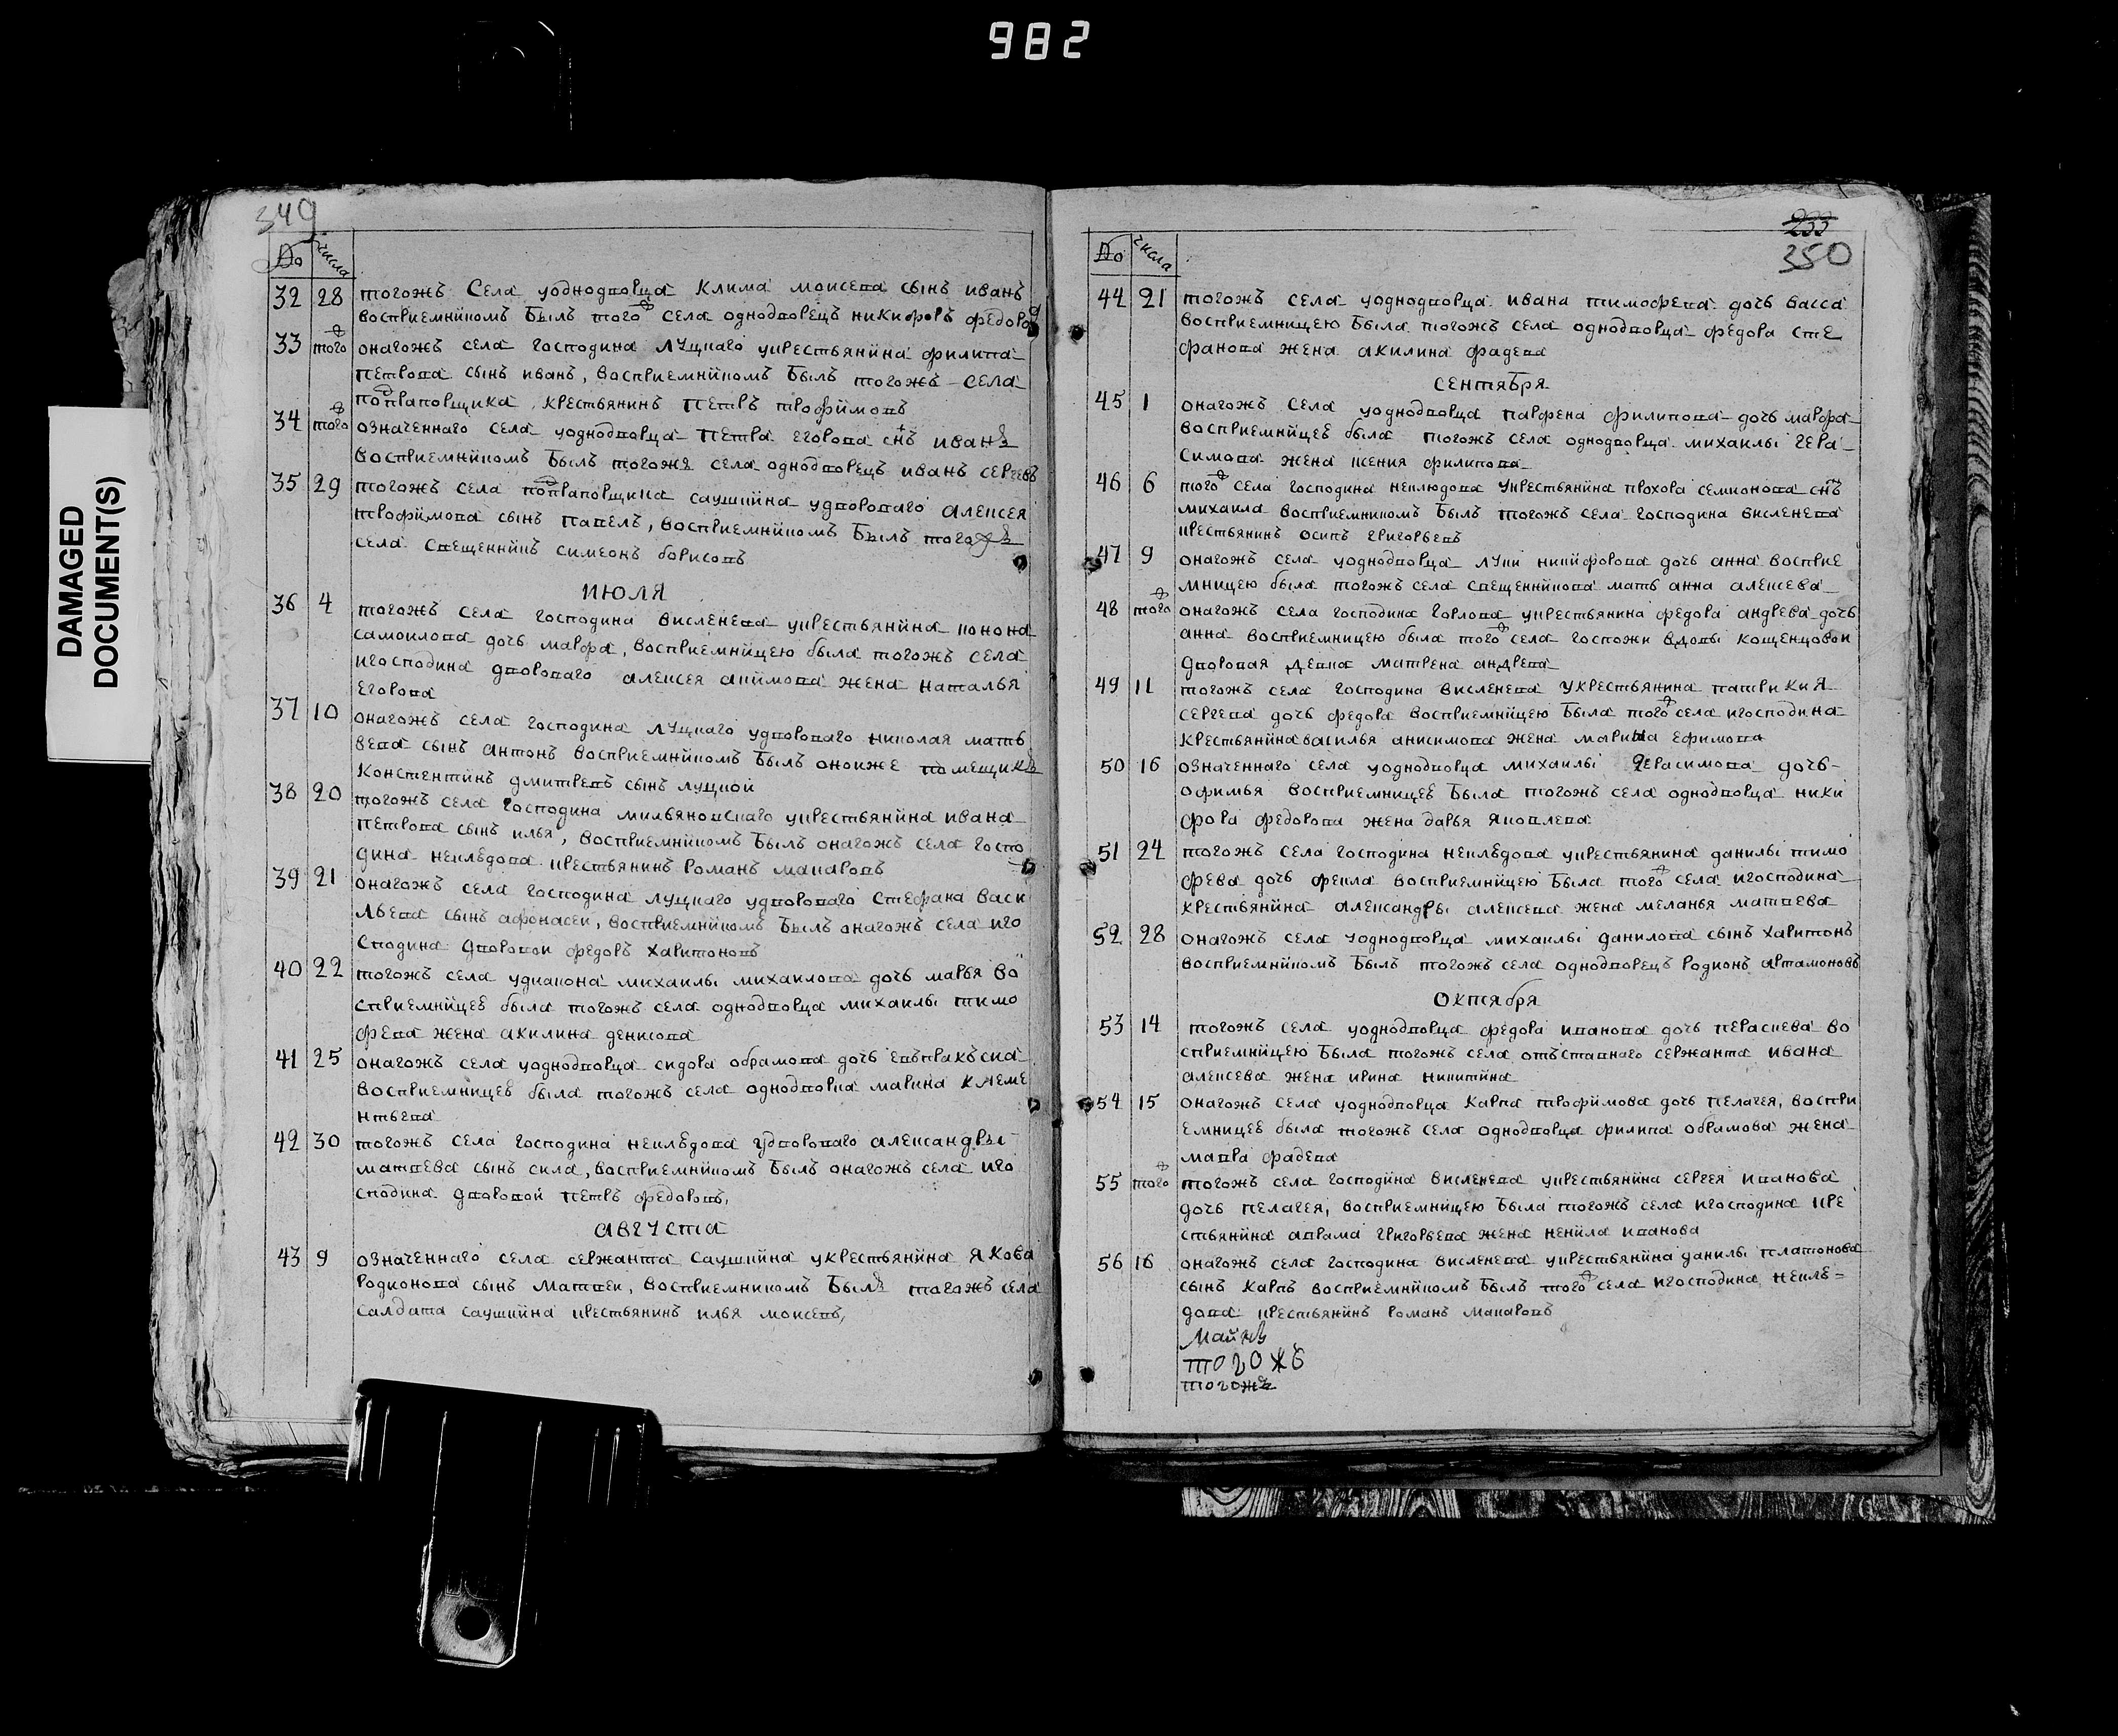 982
DAMAGED
DOCUMENT(S)
349
№ числа
32 28 тогожъ Села уоднодворца Клима моисева сынъ иванъ
восприемникомъ Былъ тогож села однодворецъ никифоръ федоров
33 тогож онагожъ села господина луцкаго укрестьянина филипа
петрова сынъ иванъ, восприемникомъ Былъ тогожъ села
подпрапорщика крестьянинъ петръ трофимовъ
34 тогож означеннаго села уоднодворца петра егорова снъ иванъ
восприемникомъ Былъ тогоже села однодворецъ иванъ сергевъ
35 29 тогожъ села подпрапорщика саушкина удвороваго алексея
трофимова сынъ павелъ, восприемникомъ Былъ тогожъ
села свещенникъ симеонъ борисовъ
ИЮЛЯ
36 4 тогожъ села господина висленева укрестьянина конона
самоилова дочь марфа, восприемницею была тогожъ села
игосподина двороваго алексея акимова жена наталья
егорова
37 10 онагожъ села господина луцкаго удвороваго николая матъ
вева сынъ антонъ восприемникомъ Былъ онокже помещикъ
Констентинъ дмитревъ сынъ луцкой
38 20 тогожъ села господина мильяновскаго укрестьянина ивана
петрова сынъ илья, восприемникомъ Былъ онагожъ села госпо
дина неклѣдова крестьянинъ романъ макаровъ
39 21 онагожъ села господина луцкаго удвороваго стефана васи
льева сынъ афонасеи, восприемникомъ Былъ онагожъ села иго
сподина дворовои федоръ харитоновъ
40 22 тогожъ села удиакона михаилы михаилова дочь марья во
сприемницеѣ была тогожъ села однодворца михаилы тимо
фева жена акилина денисова
41 25 онагожъ села уоднодворца сидора обрамова дочь евъпракъсиа
восприемницеѣ была тогожъ села однодворка марина клеме
нтьева
42 30 тогожъ села господина неклѣдова удвороваго александры
матвева сынъ сила, восприемникомъ Былъ онагожъ села иго
сподина дворовой петръ федоровъ,
АВГУСТА
43 9 означеннаго села сержанта саушкина укрестьянина Якова
родионова сынъ матвеи, восприемникомъ Былъ тогожъ села
салдата саушкина крестьянинъ илья моисевъ,
233
350
№ числа
44 21 тогожъ села уоднодворца ивана тимофева дочь васса
восприемницею была тогожъ села однодворца федора сте
фанова жена акилина фадева
сентября
45 1 онагожъ села уоднодворца парфена филипова дочь марфа
восприемницеѣ была тогожъ села однодворца михаилы гера
симова жена ксения филипова
46 6 тогож села господина неклюдова укрестьянина прохора семионова снъ
михаила восприемникомъ Былъ тогожъ села господина висленева
крестьянинъ осипъ григорьевъ
47 9 онагожъ села уоднодворца луки никифорова дочь анна восприе
мницею была тогожъ села свещенникова мать анна алексева
48 тогож онагожъ села господина горлова укрестьянина федора андрева дочь
анна восприемницею была тогож села госпожи вдовы кощенцовои
дворовая девка матрена андрева
49 11 тогожъ села господина висленева укрестьянина патрикия
сергева дочь федора восприемницею Была тогож села игосподина
крестьянина василья анисимова жена марина ефимова
50 16 означеннаго села уоднодворца михаилы герасимова дочь
офимья восприемницеѣ Была тогожъ села однодворца ники
фора федорова жена дарья яковлева
51 24 тогожъ села господина неклѣдова укрестьянина данилы тимо
фева дочь фекла восприемницею Была тогож села игосподина
крестьянина александры алексева жена меланья матвева
52 28 онагожъ села уоднодворца михаилы данилова сынъ харитонъ
восприемникомъ Былъ тогожъ села однодворецъ родионъ артамоновъ
Октября
53 14 тогожъ села уоднодворца федора иванова дочь параскева во
сприемницею Была тогожъ села отъставнаго сержанта ивана
алексева жена ирина никитина
54 15 онагожъ села уоднодворца карпа трофимова дочь пелагея, воспри
емницеѣ была тогожъ села однодворца филипа обрамова жена
мавра фадева
55 тогож тогожъ села господина висленева укрестьянина сергея иванова
дочь пелагея, восприемницею Была тогожъ села игосподина кре
стьянина аврама григорьева жена ненила иванова
56 16 онагожъ села господина висленева укрестьянина данилы платонова
сынъ карпъ восприемникомъ Былъ тогож села игосподина неклѣ=
дова крестьянинъ романъ макаровъ
тогожъ
тогожъ